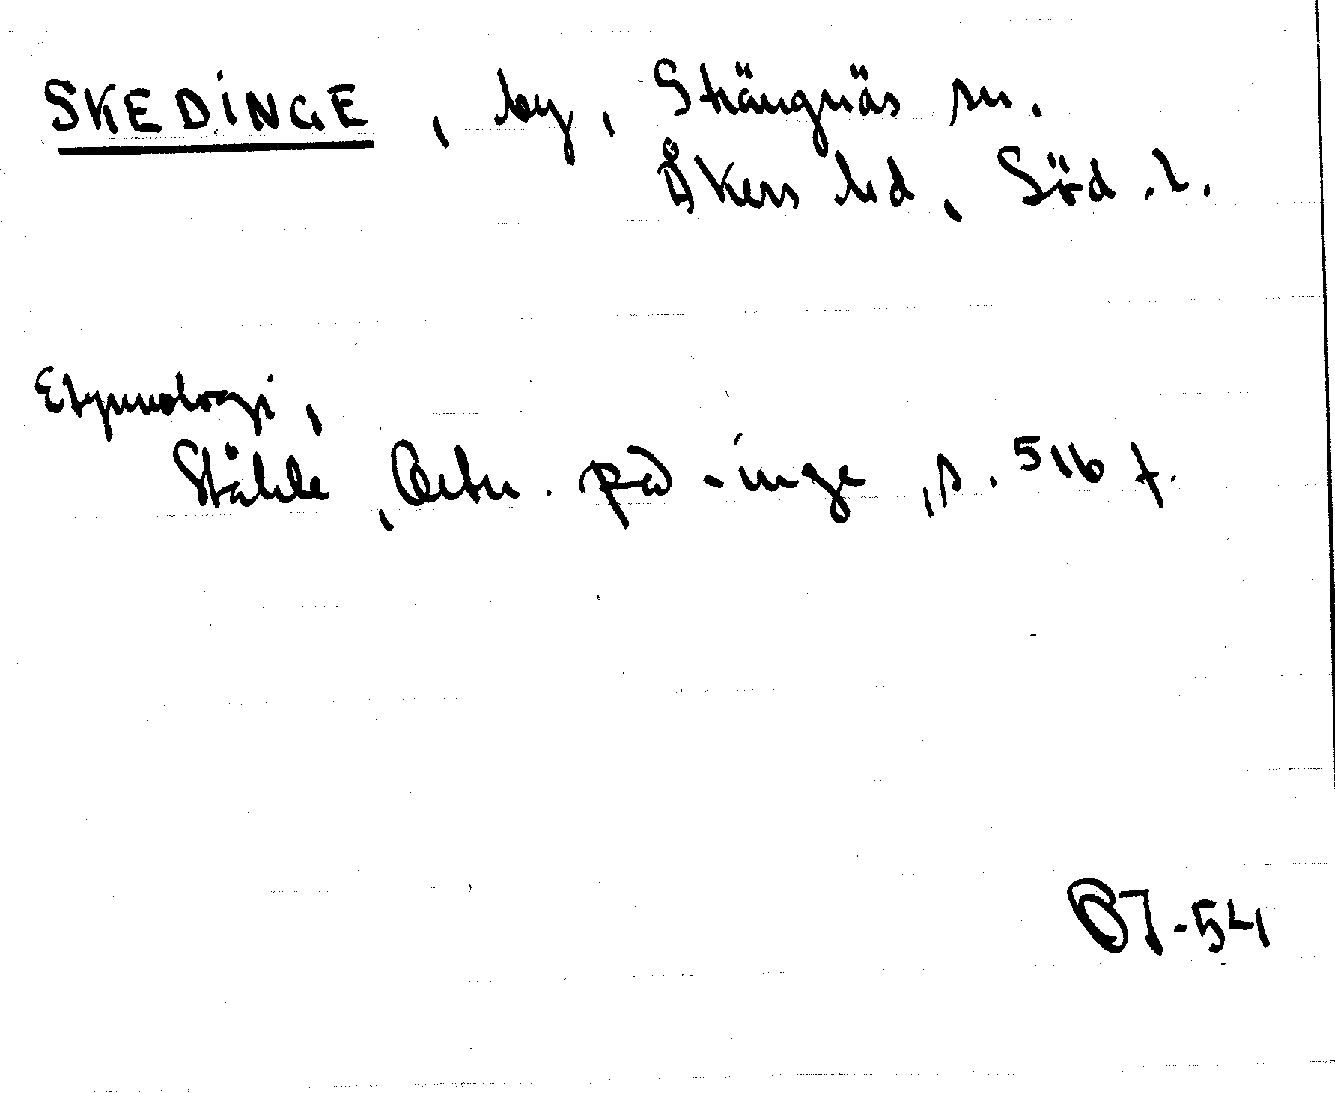 SKEDINGE, by, Strängnäs sn.
Åkers hd, Söd. l.
Etymologi,
Ståhle, Ortn. på -inge, s. 516 f.
-54